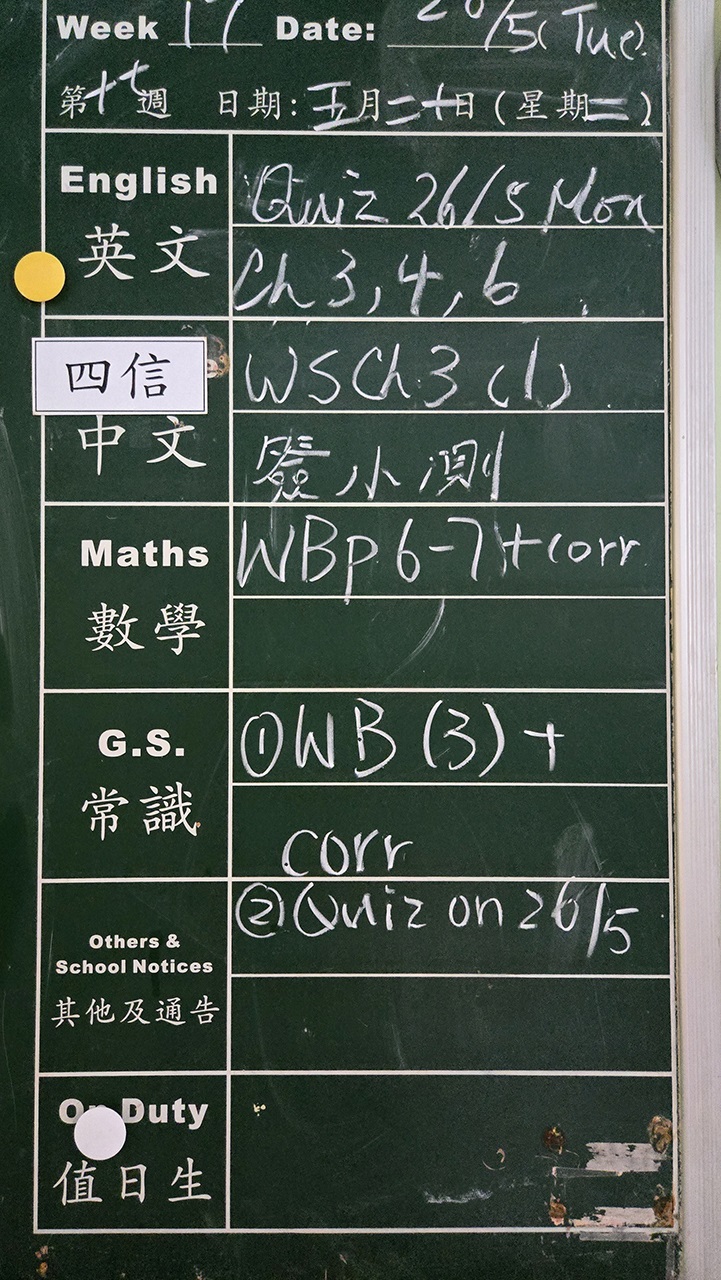 Week 17 Date: 20/5( Tue).
第十七週 日期: 五月二十日 (星期二)
English Quiz 26/5 Mon
英文 Ch 3, 4, 6
四信 WS Ch.3 (1)
中文 簽小測
Maths WBp 6-7 + corr
數學
G.S. ① WB (3) +
常識 corr
② Quiz on 26/5
Others &
School Notices
其他及通告
On Duty
值日生